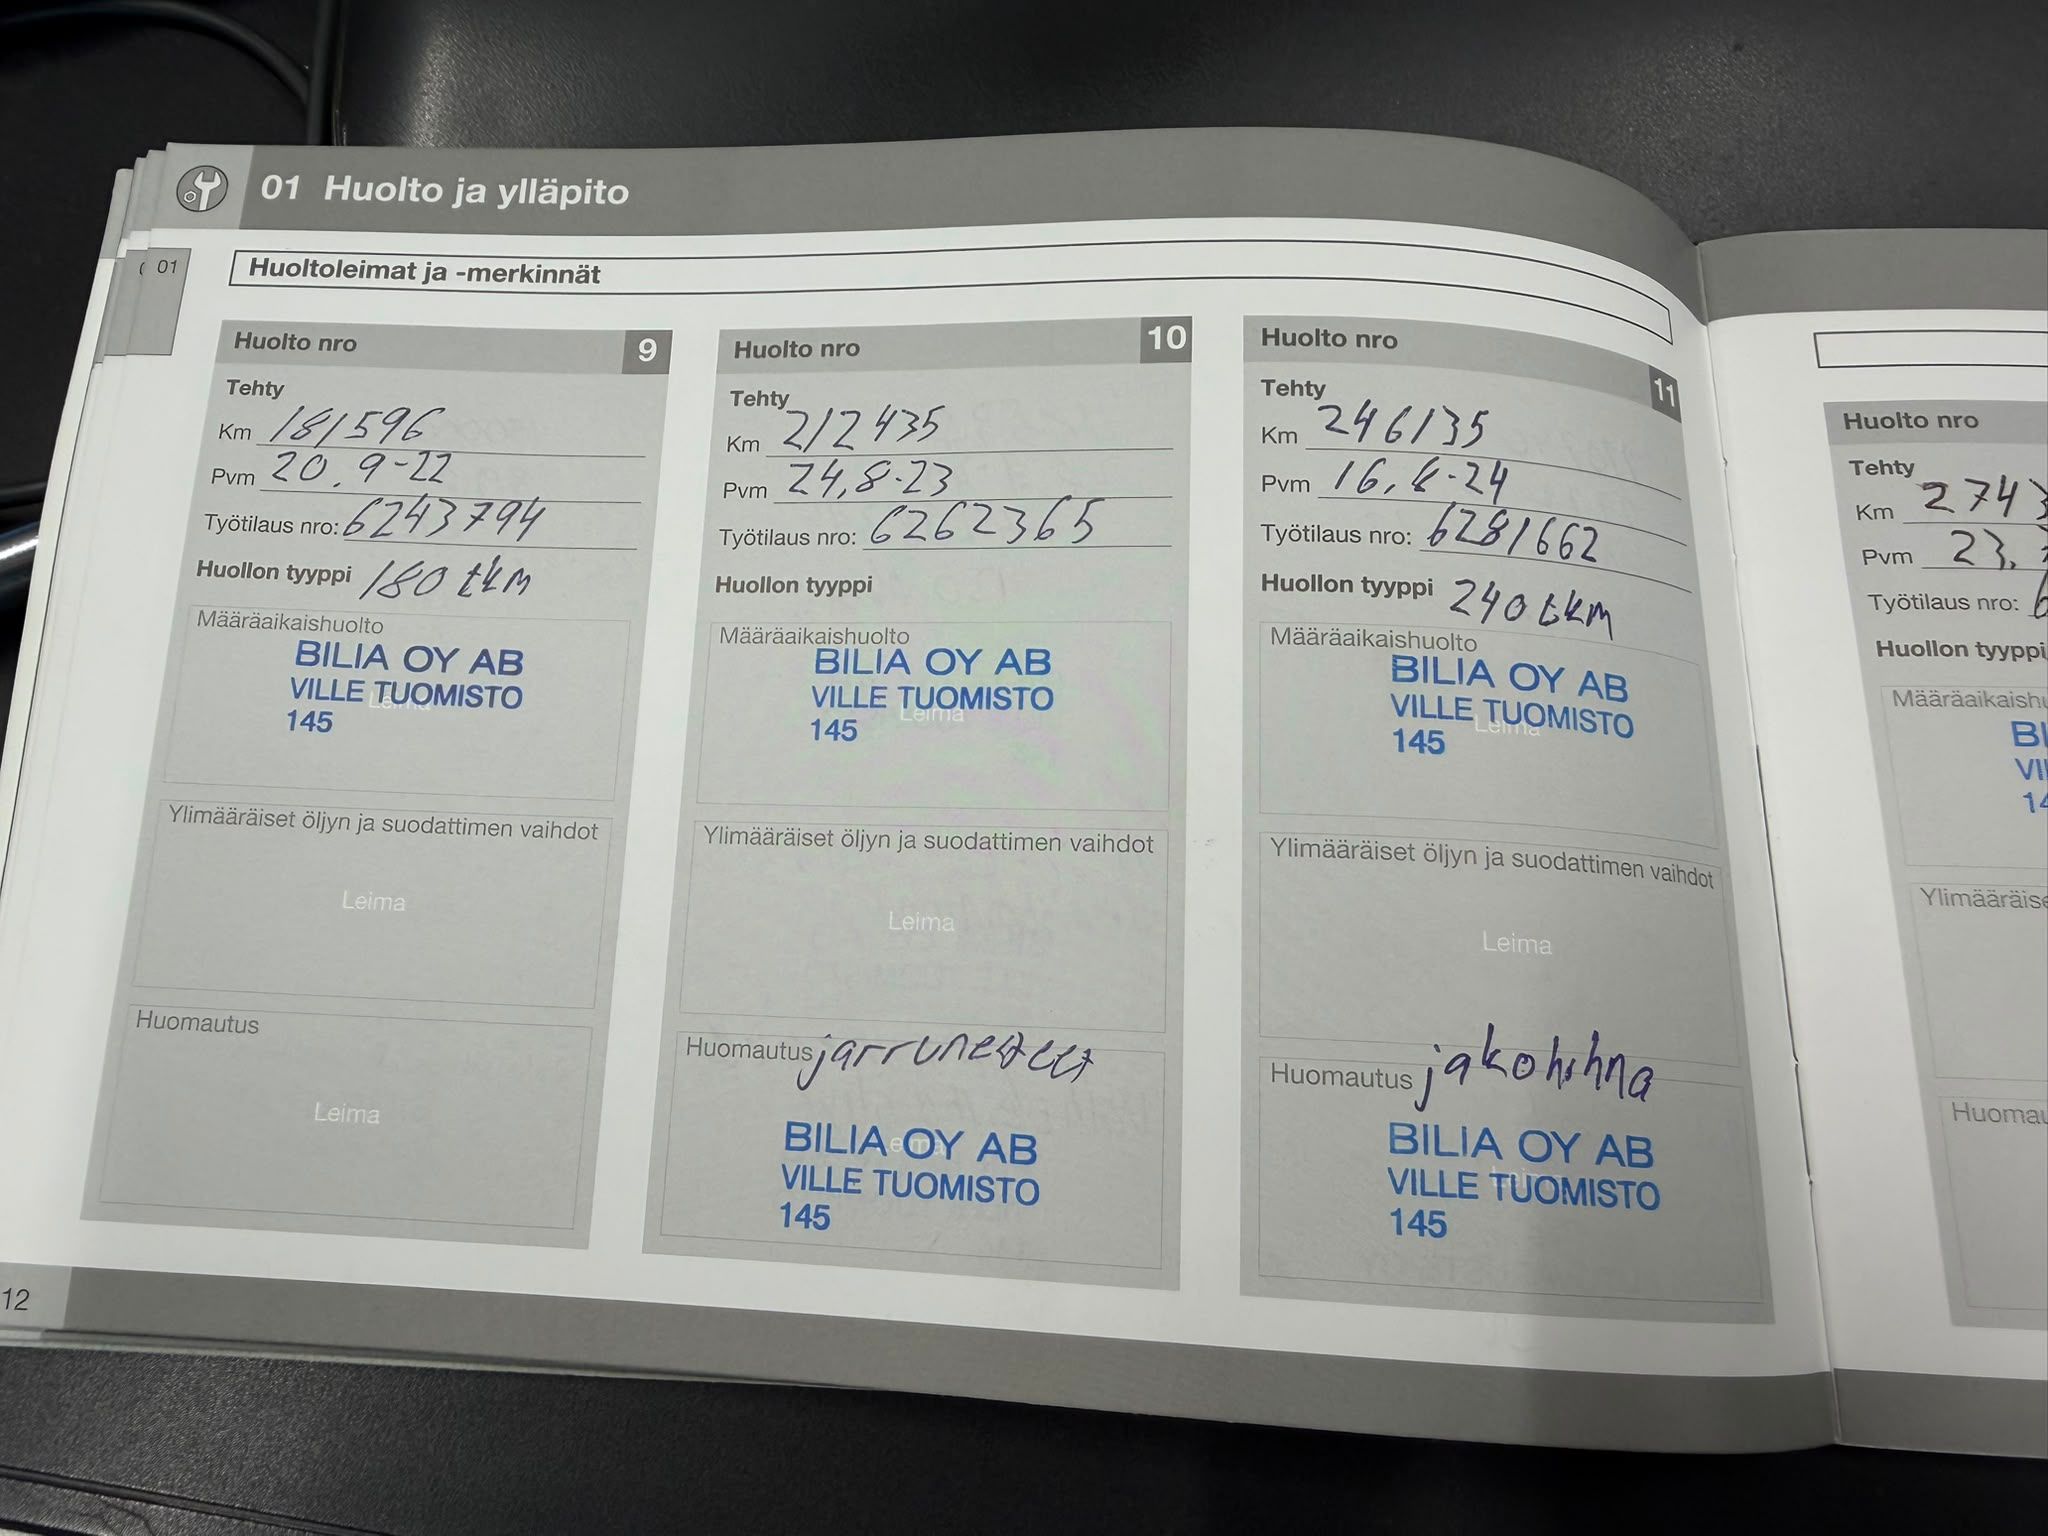 01 Huolto ja ylläpito
01
Huoltoleimat ja -merkinnät
Huolto nro 9
Tehty
Km 181596
Pvm 20.9-22
Työtilaus nro: 6243794
Huollon tyyppi 180 tkm
Määräaikaishuolto
BILIA OY AB
VILLE TUOMISTO
145
Ylimääräiset öljyn ja suodattimen vaihdot
Leima
Huomautus
Leima
Huolto nro 10
Tehty
Km 212435
Pvm 24,8-23
Työtilaus nro: 6262365
Huollon tyyppi
Määräaikaishuolto
BILIA OY AB
VILLE TUOMISTO
Leima
145
Ylimääräiset öljyn ja suodattimen vaihdot
Leima
Huomautus jarruneste
BILIA OY AB
VILLE TUOMISTO
145
Huolto nro 11
Tehty
Km 246135
Pvm 16.8-24
Työtilaus nro: 6281662
Huollon tyyppi 240 tkm
Määräaikaishuolto
BILIA OY AB
VILLE TUOMISTO
Leima
145
Ylimääräiset öljyn ja suodattimen vaihdot
Leima
Huomautus jakohihna
BILIA OY AB
VILLE TUOMISTO
145
12
Huolto nro
Tehty
Km 2743
Pvm 23.
Työtilaus nro: 6
Huollon tyyppi